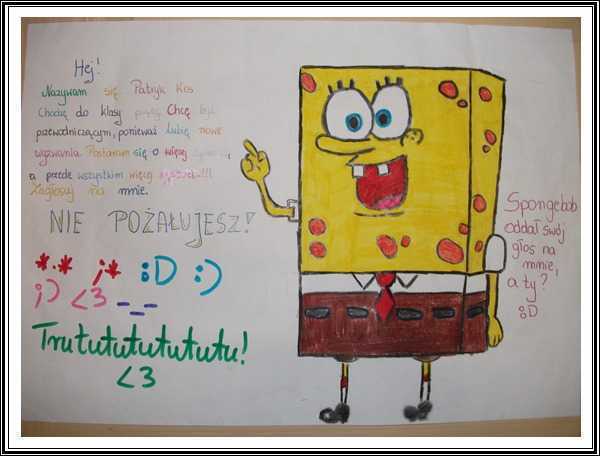 Hej!
Nazywam się Patryk Kos
Chodzę do klasy Chcę być
przewodniczącym, ponieważ lubię nowe
wyzwania. Postaram się o więcej
a przede wszystkim więcej !!!
Zagłosuj na mnie.
NIE POŻAŁUJESZ!
*.* ;* :D :)
;) <3 -_-
Trutututututu!
<3
Spongebob
oddał swój
głos na
mnie,
a ty?
:D